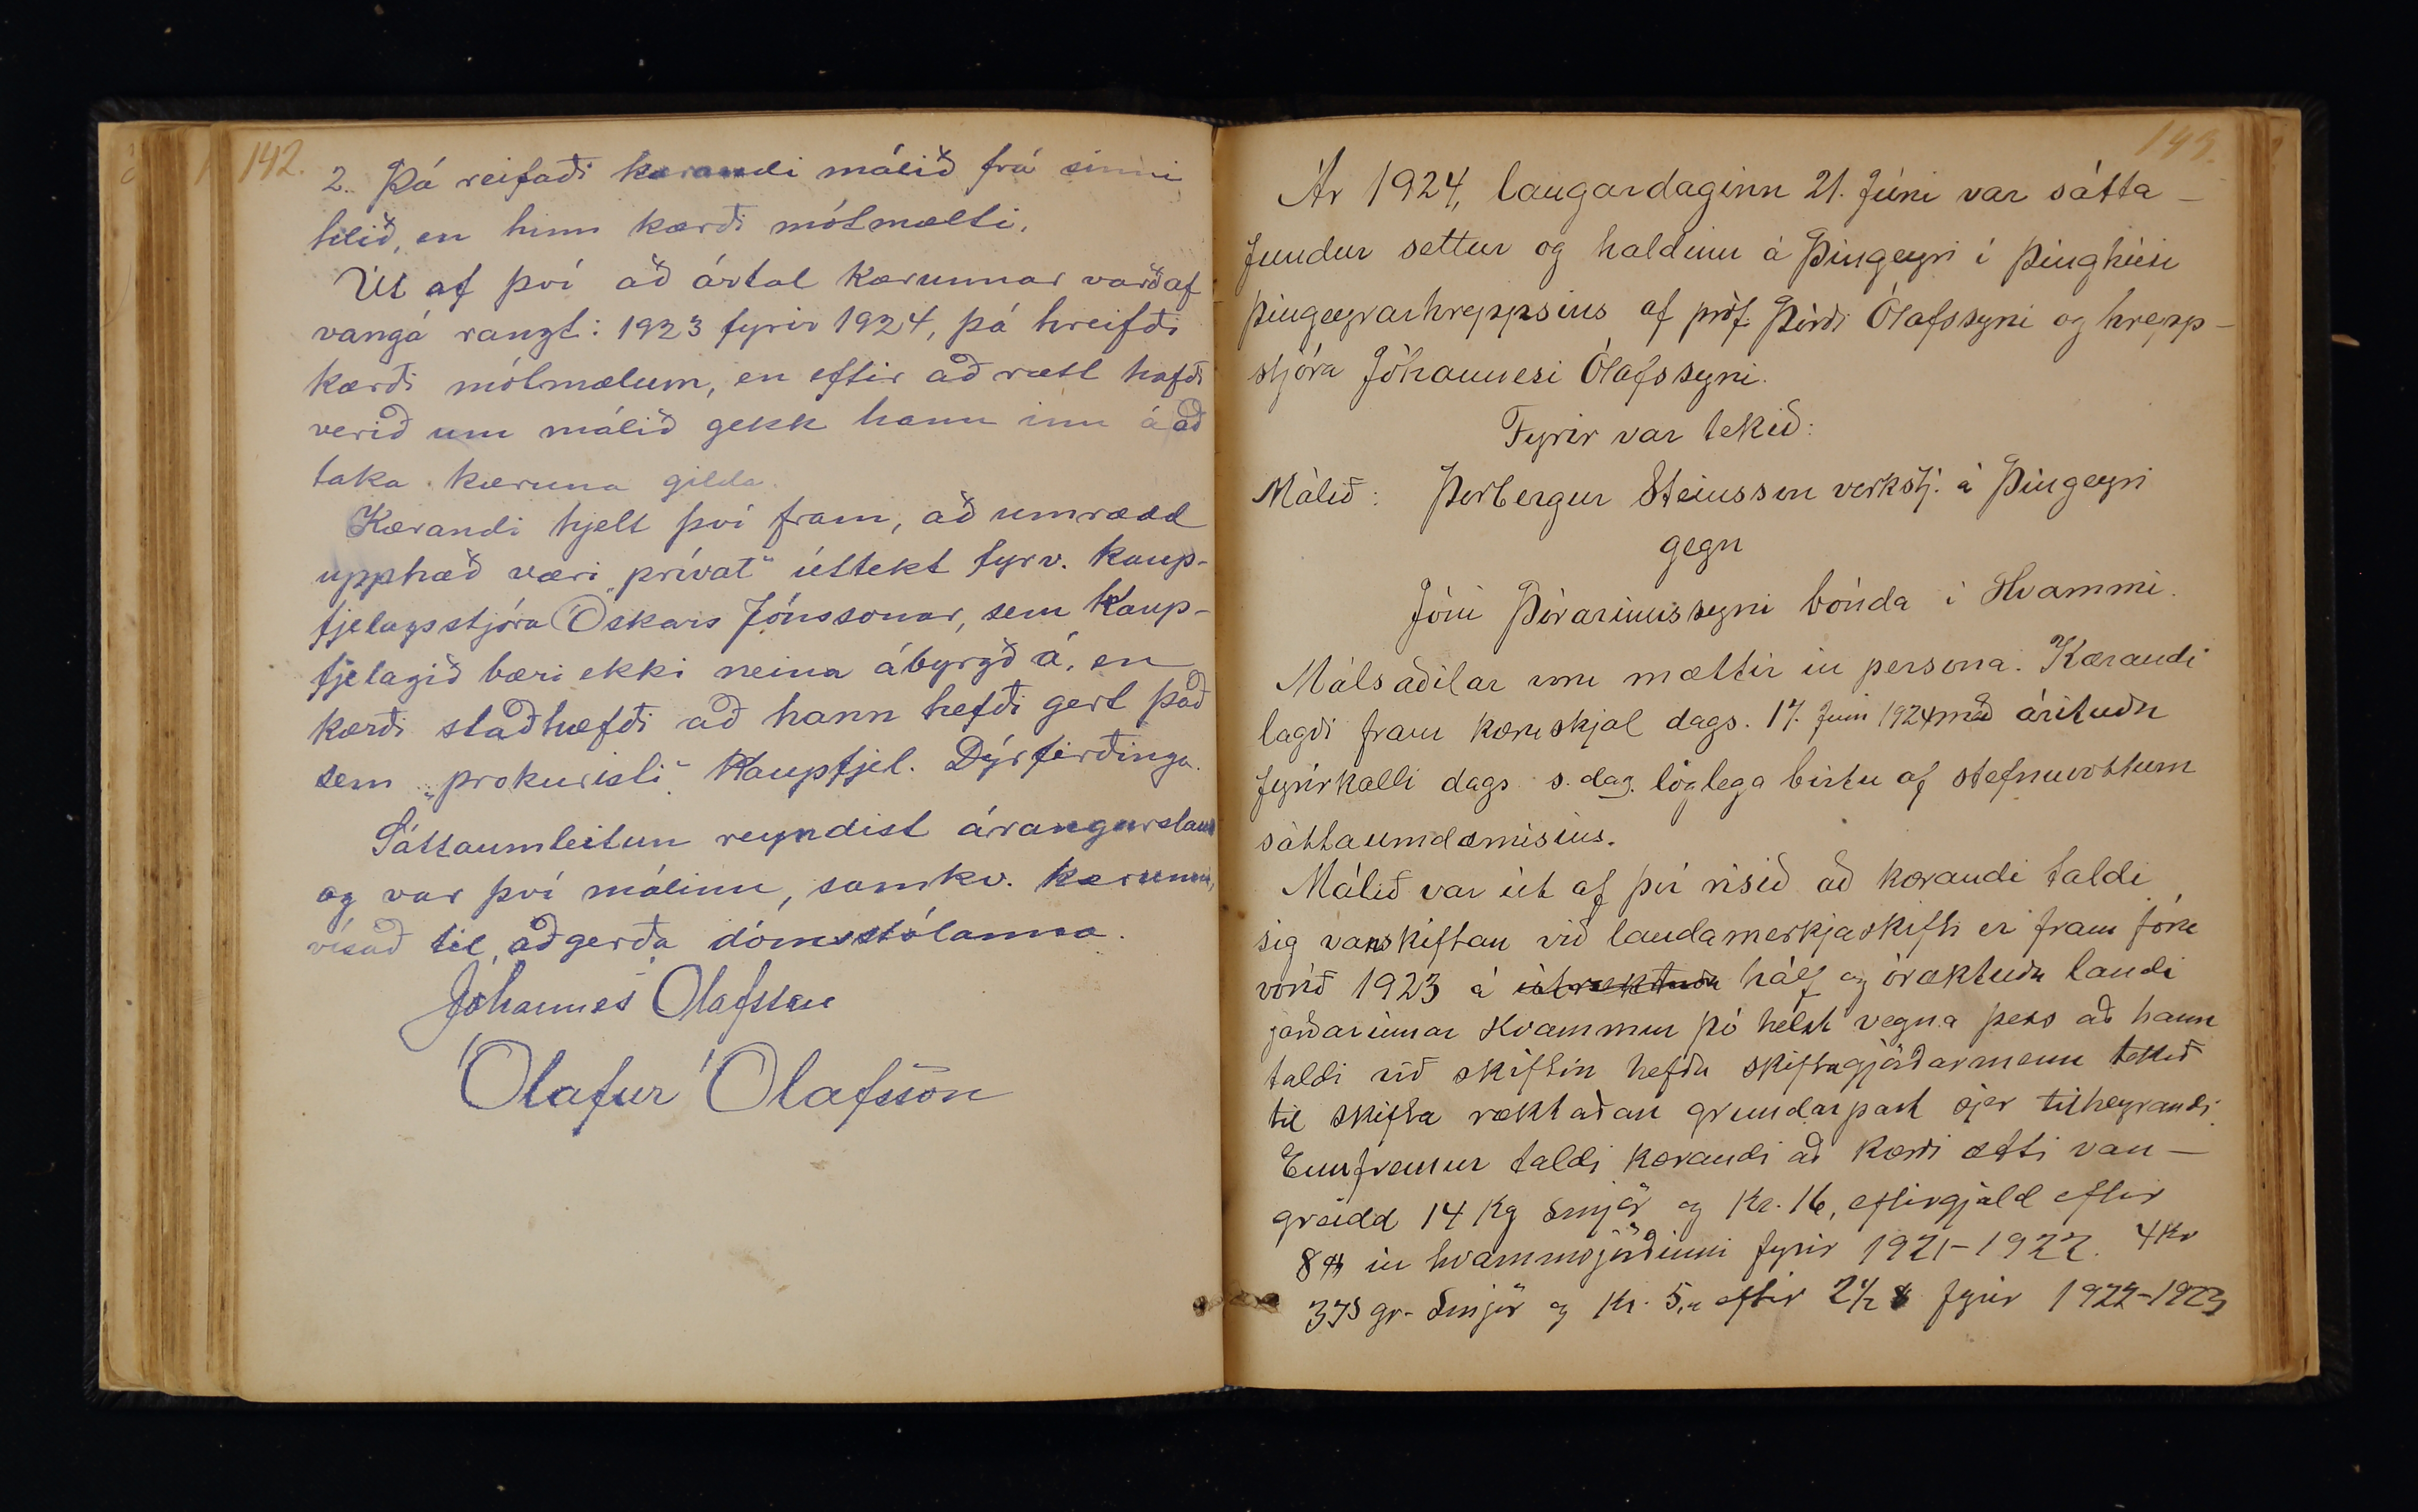 142.
2. Þá reifaði kærandi málið frá sinni
hlið, en hinn kærði mótmælti.
Út af því að ártal kærunnar varð af
vangá rangt: 1923 fyrir 1924, þá hreifði
kærði mótmælum, en eftir að rætt hafði
verið um málið gekk hann inn á að
taka kæruna gilda.
Kærandi hjelt því fram, að umrædd
upphæð væri „prívat“ úttekt fyrv. kaup-
fjelagsstjóra Óskars Jónssonar, sem Kaup-
fjelagið bæri ekki neina ábyrgð á, en
kærði staðhæfði að hann hefði gert það
sem „prokuristi“ Kaupfjel. Dýrfirðinga.
Sáttaumleitun reyndist árangurslaus
og var því málinu, samkv. kærunni,
vísað til aðgerða dómstólanna.
Jóhannes Ólafsson
Ólafur Ólafsson
143.
Ár 1924, laugardaginn 21. Júni var sátta-
fundur settur og haldinn á Þingeyri í þinghúsi
Þingeyrarhreppsins af próf. Þórði Ólafssyni og hrepp-
stjóra Jóhannesi Ólafssyni.
Fyrir var tekið:
Málið: Þorbergur Steinsson verkstj. á Þingeyri
gegn
Jóni Þórarinssyni bónda í Hvammi.
Málsaðilar voru mættir in persona. Kærandi
lagði fram kæruskjal dags. 17. Júni 1924 með árituðu
fyrirkalli dags s. dag. löglega birtu af stefnuvottum
sáttaumdæmisins.
Málið var út af því risið að kærandi taldi
sig vanskiftan við landamerkjaskifti er fram fóru
vorið 1923 á útræktuðu hálf og óræktuðu landi
jarðarinnar Hvammur þó helst vegna þess að hann
taldi við skiftin hefðu skiftagjörðarmenn tekið
til skifta ræktaðan grundarpart sjer tilheyrandi.
Ennfremur taldi kærandi að kærði ætti van-
greidd 14 kg smjör og Kr. 16, eftirgjald eftir
8 in hvammsjörðinni fyrir 1921-1922. 4 Kr
375 gr. smjör og Kr. 5, eftir 2 1/2 fyrir 1922-1923